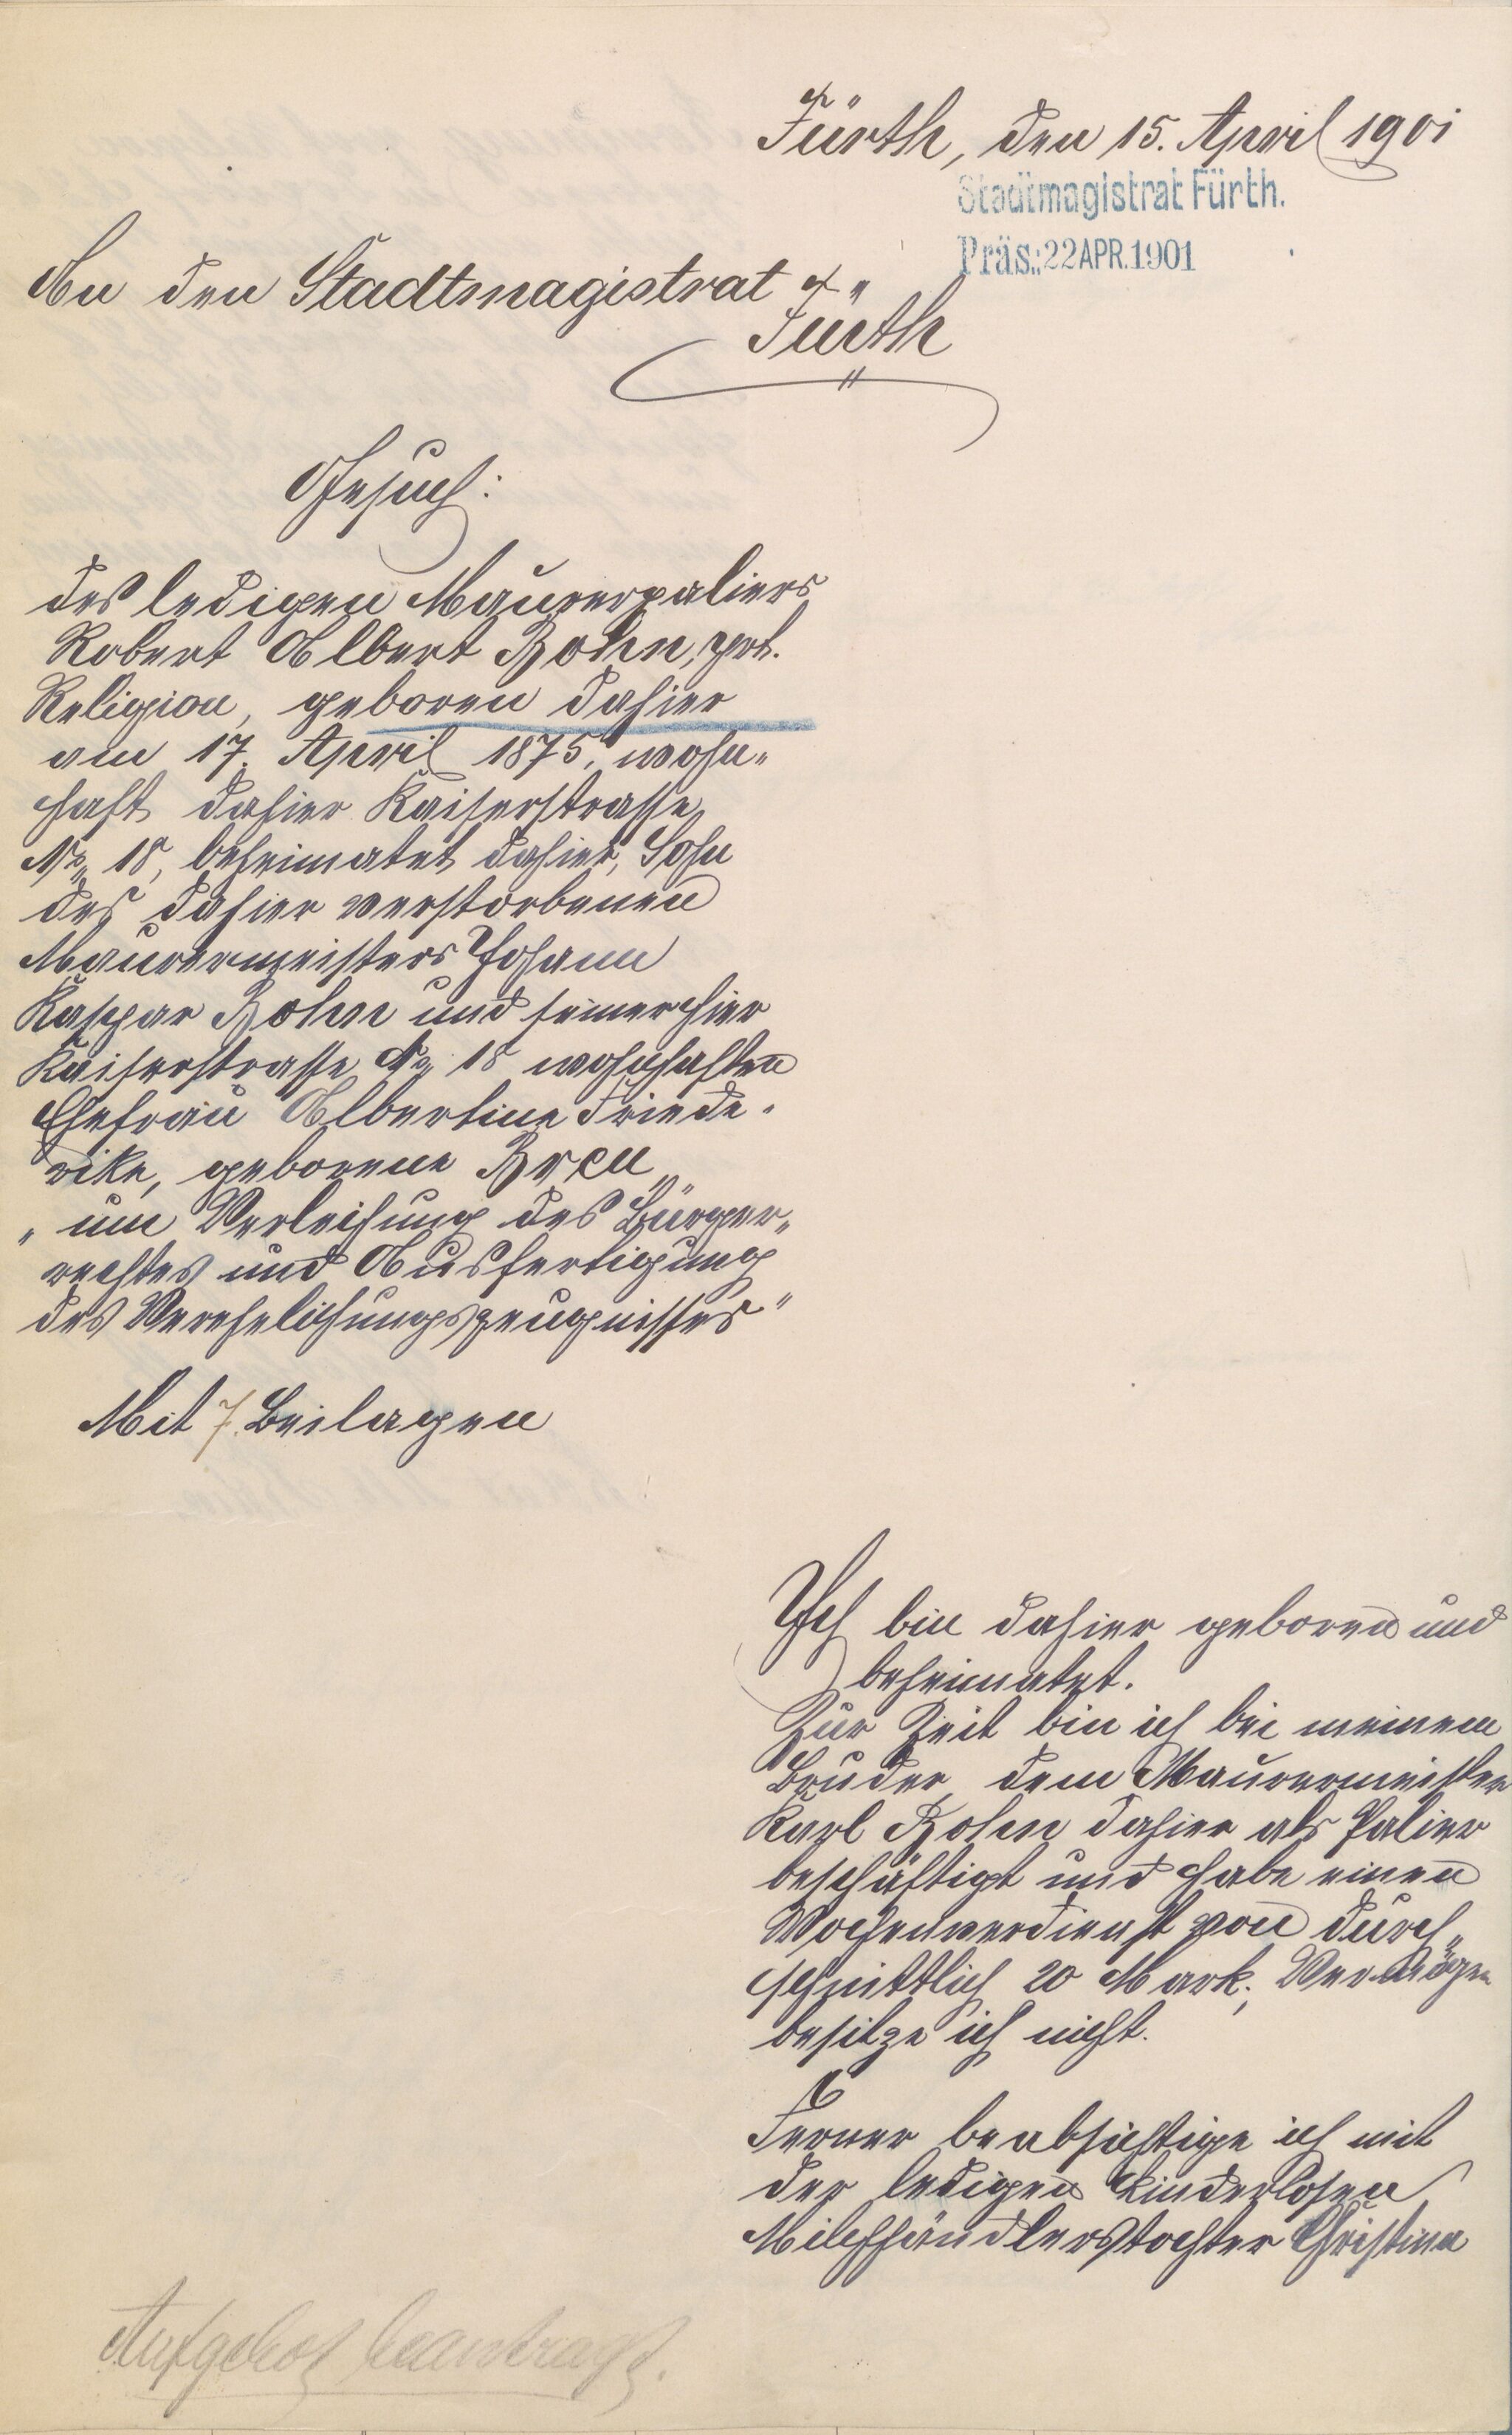 Fürth, den 15. April 1901
Stadtmagistrat Fürth.
Präs.: 22 APR. 1901
An den Stadtmagistrat
Fürth
Gesuch:
des ledigen Maurerpaliers
Robert Albert Bohn, prot.
Religion, geboren dahier
am 17. April 1875, wohn„
haft dahier Kaiserstrasse
No 18, beheimatet dahier, Sohn
des dahier verstorbenen
Maurermeisters Johann
Kaspar Bohn und seiner hier
Kaiserstrasse No 18 wohnhaften
Ehefrau Albertine Friede„
rike, geborene Breu
„um Verleihung des Bürger„
rechtes und Ausfertigung
des Verehelichungszeugnisses"
Mit 7 Beilagen
Ich bin dahier geboren und
beheimatet.
Zur Zeit bin ich bei meinem
Bruder, dem Maurermeister
Karl Bohn dahier als Palier
beschäftigt und habe einen
Wochenverdienst von durch„
schnittlich 20 Mark; Vermögen
besitze ich nicht.
Ferner beabsichtige ich mit
der ledigen kinderlosen
Milchhändlerstochter Christina
Aufgebot beantragt.